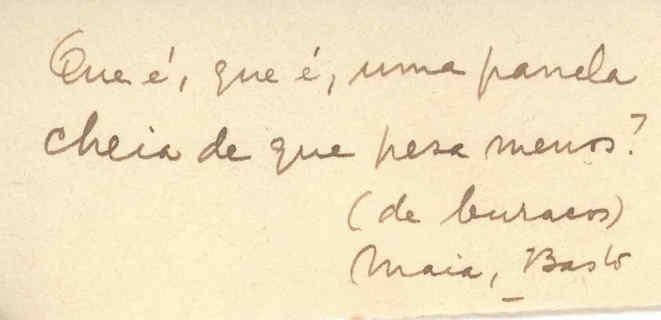 Que é, que é, uma panela
cheia de que pesa menos?
(de buracos)
Maia, Basto